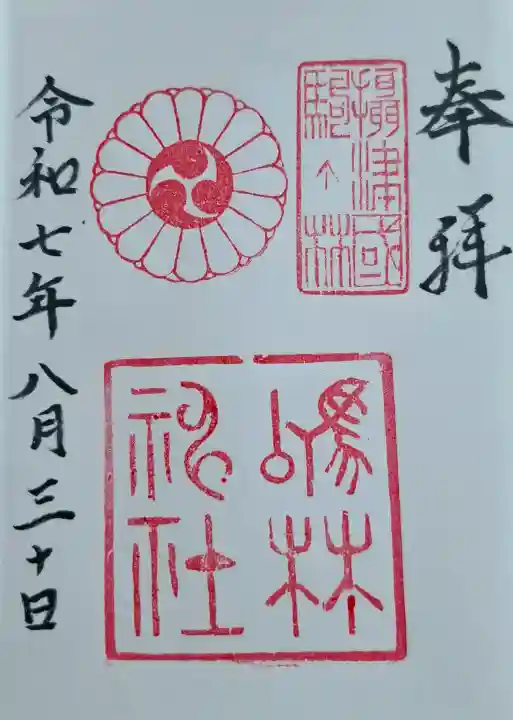 奉拝
攝津國
駒ヶ林
駒林
神社
令和七年八月三十日